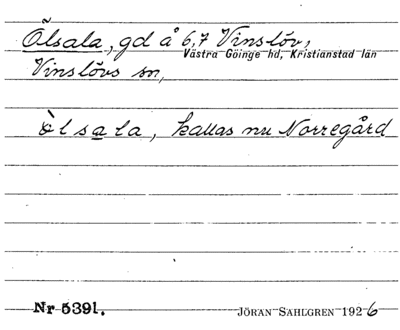 Ölsala, gd å 6,7 Vinslöv,
Västra Göinge hd, Kristianstad län
Vinslövs sn,
l s a l a, kallas nu Norregård
Nr 5391.
JÖRAN SAHLGREN 1926